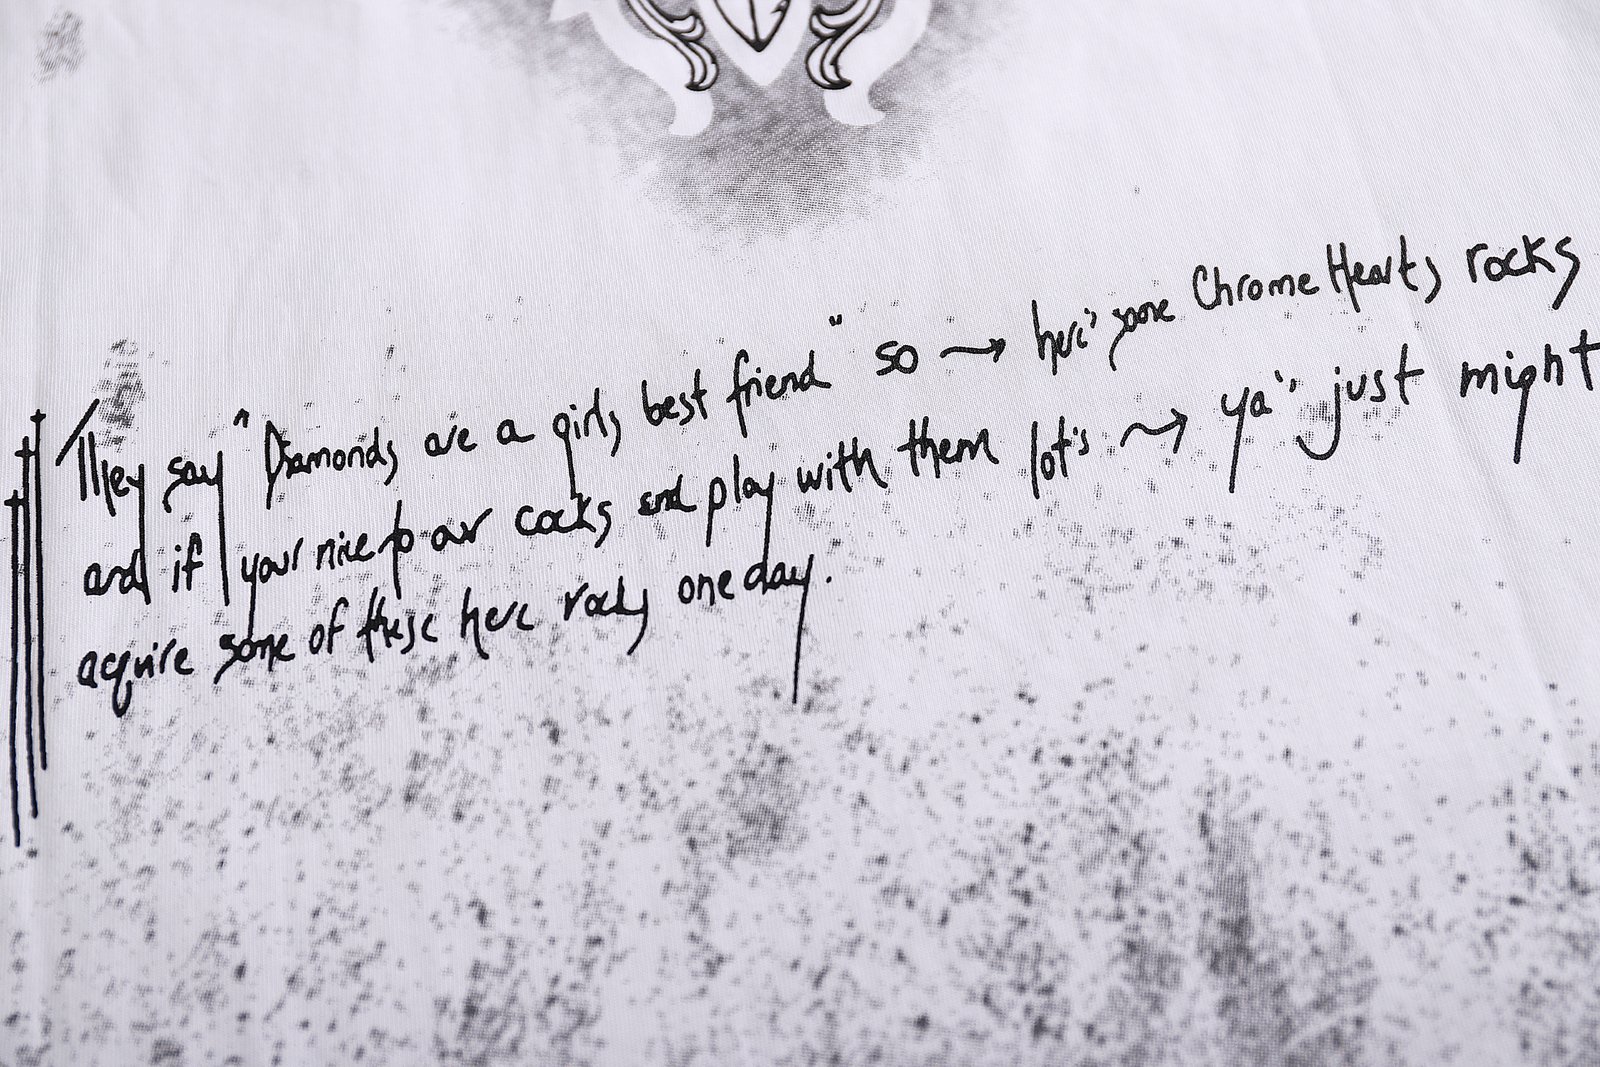 They say "Diamonds are a girls best friend" so → here's some Chrome Hearts rocks
and if your nice to our cocks and play with them lot's → ya'' just might
acquire some of these here rocks one day.